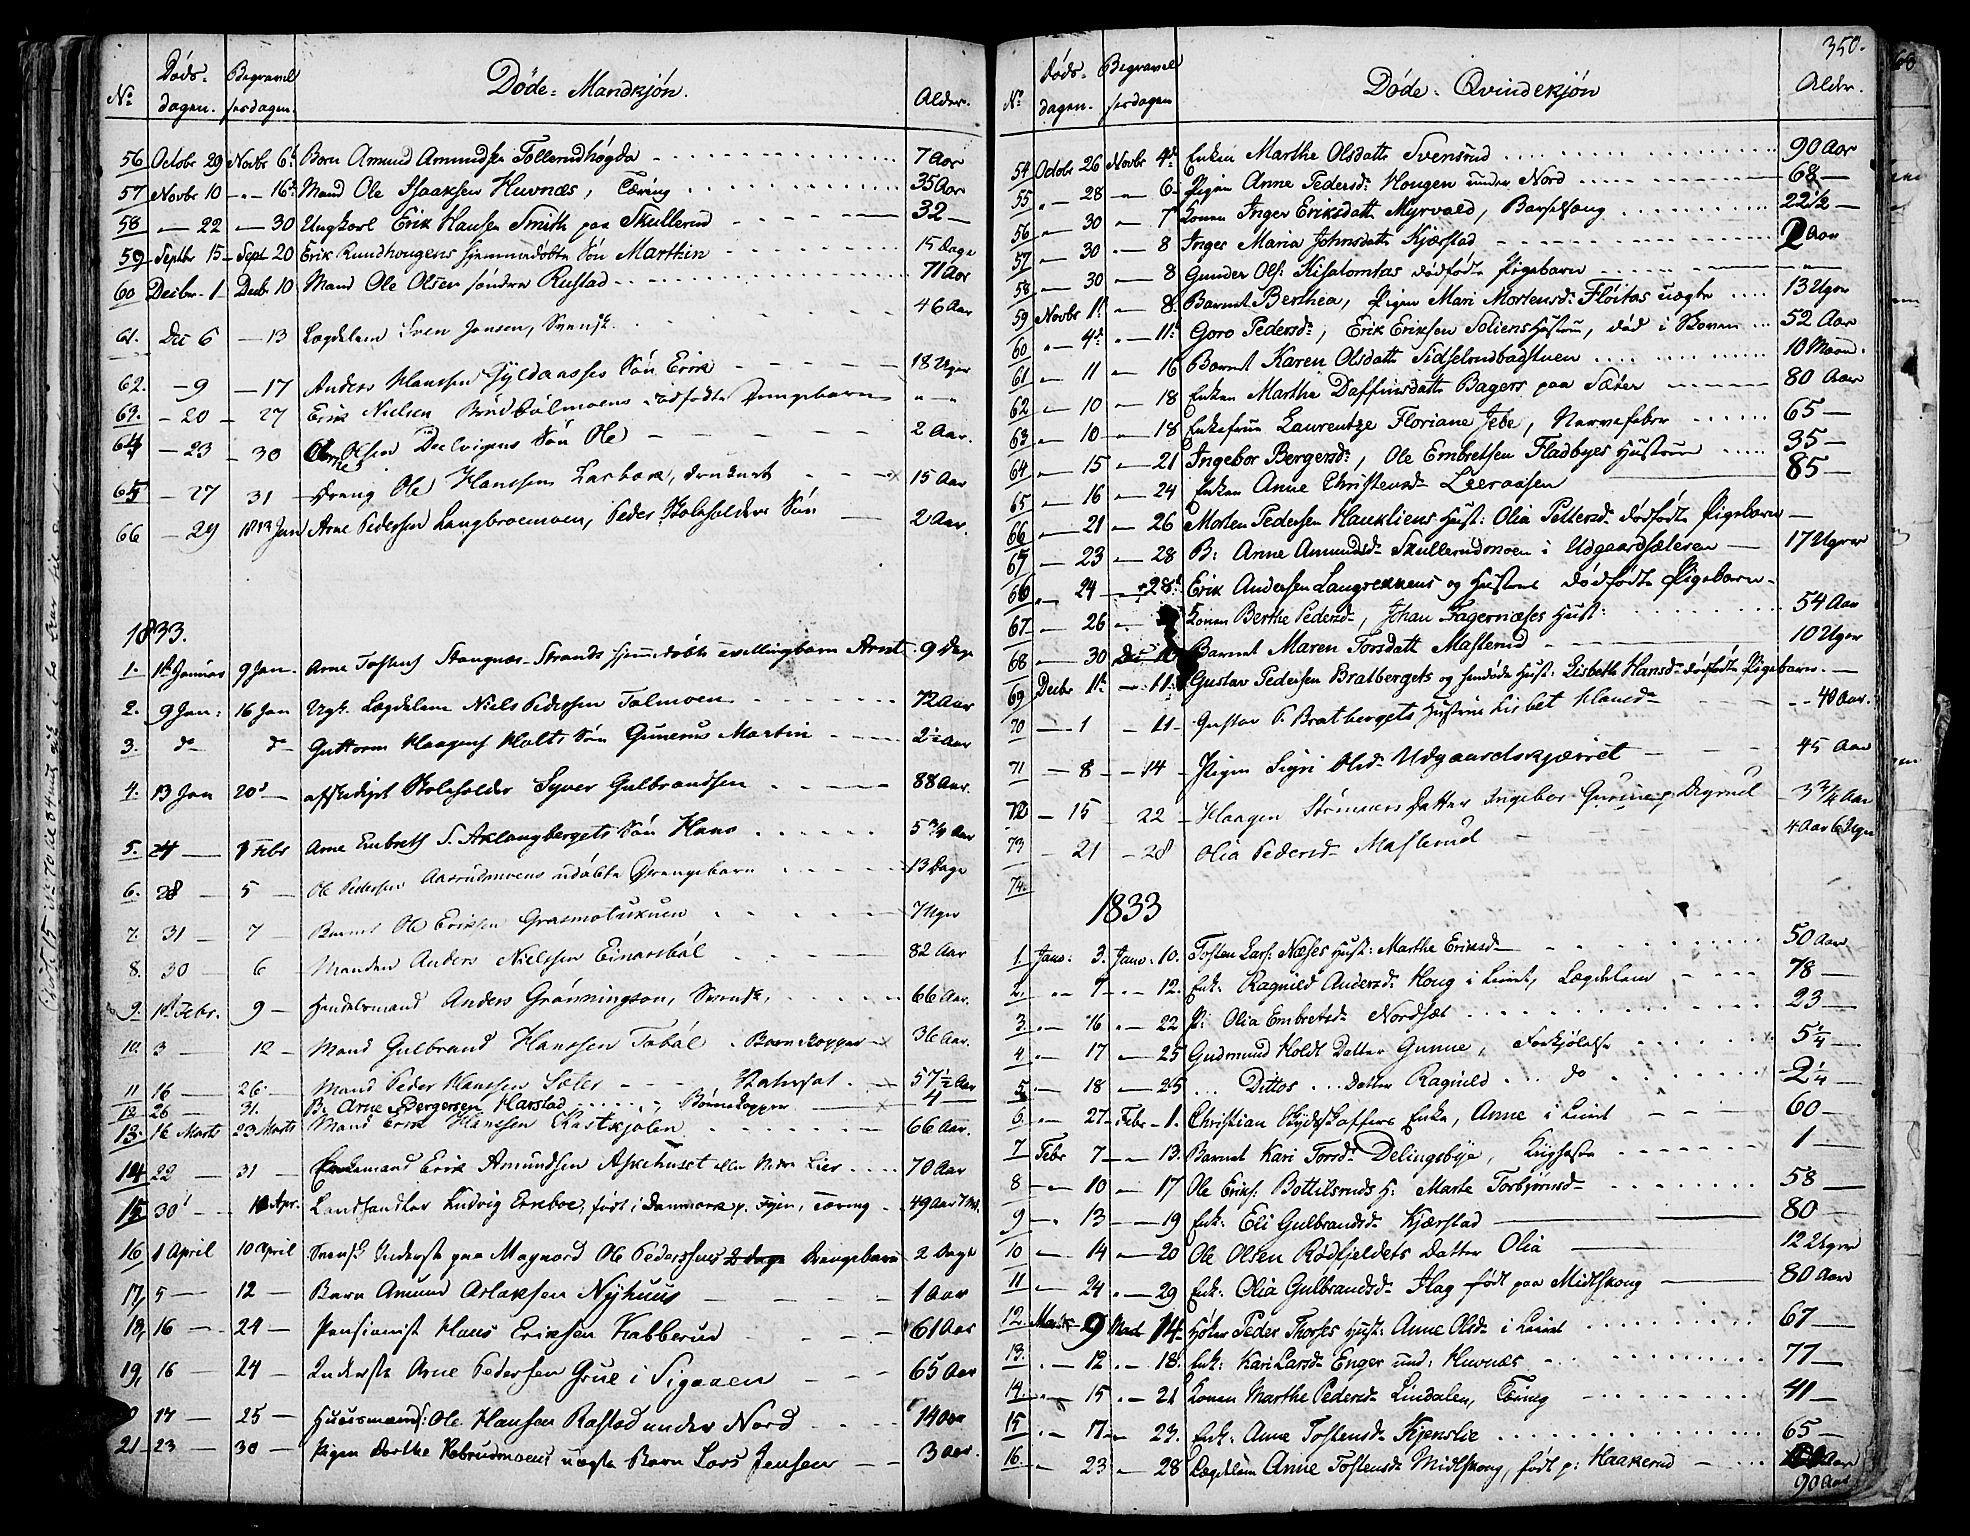 Døde: Mandkjøn.
No Døds- dagen. Begravel sesdagen. Alder.
56 Octobr 29 Novbr 6 Barn Amund Amundsen Tollerudhøgda 7 Aar
57 Novbr 10 — 16 Mand Ole Isaaksen Huvnæs, Tæring 35 Aar
58 — 22 — 30 Ungkarl Erik Hansen Smith paa Skullerud 32 —
59 Septbr 15 Sept 20 Erik Rundhougens hjemmedøbte Søn Marthin 15 Dage
60 Decbr 1 Decbr 10 Mand Ole Olsen søndre Rustad 71 Aar
61. Dec 6 — 13 Lægdslem Sven Jansen, Svensk. 46 Aar
62. — 9 — 17 Anders Hanssen Gyldaasses Søn Erik 18 Uger
63. — 20 — 27 Erik Nielsen dødfødte Drengebarn " — "
64 — 23 — 30 Olsen Søn Ole 2 Aar.
65 — 27 31 Dreng Ole Hanssen druknet 15 Aar
66 — 29 13 Jan Arne Pedersen Langbroemoen, Peder Skoleholders Søn 2 Aar.
1833.
1. 1te Januar 9 Jan. Arne Tostens Stangnæs-Strands hjemmedøbte tvillingbarn Arnt 9 Dage
2. 9 Jan: 16 Jan Ugk. Lægdslem Niels Pedersen Talmoen 72 Aar
3. do do Guttorm Haagens Holts Søn Gunerus Martin 2½ Aar
4. 13 Jan 20 — afskediget Skoleholder Syver Gulbrandsen 88 Aar.
5. 24 — 1 Febr Arne Embreths S. Aklangbergets Søn Hans 5 ¾ Aar
6. 28 — 5 — Ole Pedersen Aasrudmoens udøbte Drengebarn 13 Dage
7. 31 — 7 — Barnet Ole Eriksen Grasmotukuen 7 Uger
8. 30 — 6 — Manden Anders Nielsen Einarsbøl 82 Aar
9. 1te Febr. 9 — Handelsmand Anders Grønningson, Svensk, 66 Aar.
10. 3 — 12 — Mand Gulbrand Hanssen Tabøl. Barnekopper 36 Aar.
11 16 — 26 — Mand Peder Hanssen Sæter 57 ½ Aar
12 26 — 31. B. Arne Bergersen Harstad Børnekopper 4 —
13. 16 Marts 23 Marts Mand Erik Hanssen Kastkjølen 66 Aar.
14 22 — 31 — Enkemand Erik Amundsen Askehuset eller Nedre Lier 70 Aar
15 30 — Apr. Landhandler Ludvig Erreboe, født i Danmark p. Fyen, Tæring 49 Aar 7 M.
16 1 April 10 April Svensk Inderst paa Magnord Ole Pederssens 2 dage Drengebarn 2 Dage
17, 5 — 12 — Barn Amund Aslaksen Nyhuus 1 Aar
18, 16 — 24 — Pensionist Hans Eriksen Kabberud 61 Aar
19, 16 — 24 — Inderste Arne Pedersen Grue i Sigaaen 65 Aar
17 — 25 — Huusmand: Ole Hansen Rastad under Nord
21 23 — 30 — Pigen Dorthe Kabrudmoens uægte Barn Lars Jensen 3 Aar.
350.
Døde: Qvindekjøn
No Døds- dagen. Begravel sesdagen Alder.
54 Octobr 26 Novbr 4 Enken Marthe Olsdatte Svensrud 90 Aar
55 " — 28 — 6 Pigen Anne Pedersd: Hougen under Nord 68 —
56 " — 30 — 7 Konen Inger Eriksdatte Myrvald, Barselsang 22½ —
57 " — 30 — 8 Inger Maria Johnsdatte Kjærstad 2 Aar
58 — 30 — 8 Gunder Ols: Kisalomtas dødfødte Pigebarn
59 Novbr 1 — 8. Barnet Berthea, Pigen Mari Mortensd: Fløitas uægte 13 Uger
60 " — 4 " — 11 Goro Pedersd:, Erik Eriksen Soliens Hustru, død i Skoven 52 Aar
61 — 11 — 16 Barnet Karen Olsdatte Sidselrudbagstuen 10 Maan.
62 — 10 — 18 Enken Marthe Daffinsdatte Bagers paa Sæter 80 Aar
63 — 10 — 18 Enkefrue Laurentze Floriane Jebe, Nervefeber 65 —
64 — 15 — 21 Ingebor Bergersd:, Ole Embretsen Fladbyes Hustrue 35 —
65 — 16 — 24 Enken Anne Christensd: Leeraasen 85 —
66 — 21 — 26 Morten Pedersen Haukliens Hust: Olia Pettersd: dødfødte Pigebarn —
65 — 23 — 28 B: Anne Amundsd: Skullerudmoen i Udgaardsæteren 17 Uger
66 — 24 — 28 Erik Andersen Langrekkens og Hustrue dødfødte Pigebarn
67 — 26 — Konen Berthe Pedersd:, Johan Fagernæses Hust: 54 Aar
68 — 30 Dec Barnet Maren Torsdatte Masterud 10 Uger
69 Decbr 1 — 11 Gustav Pedersen Bratbergets og hendøde Hust: Lisbeth Hansd: dødfødte Pigebarn. —
70 — 1 — 11 Gustav P. Bratbergets Hustrue Lisbet Hansd: 40 Aar.
71 — 8 — 14 Pigen Sigri Olsd: Udgaardskjærret 45 Aar
72 — 15 — 22 Haagen Strømmers Datter Ingebor Gurine p. Degrud 3 ¾ Aar
73 — 21 — 28 Olia Pedersd: Masterud 4 Aar 6 Uger
74.
1833
1 Janv: 3. Janv. 10. Tosten Lars: Næses Hust: Marthe Eriksd: 50 Aar
2. " — 7 " — 12. Enk: Ragnild Andersd: Houg i Liint, Lægdslem 78 —
3. " — 16 " — 22 P: Olia Embretsd: Nordsæt 23 —
4 " — 17 — 25 Gudmund Holdt Datter Gunne, Forkjølelse 5 ¼ —
5 — 18 — 25 Dittos Datter Ragnild do 2 ¼ —
6 " — 27 Febr 1. Christian Skydskaffers Enke, Anne i Liint 60 —
7 Febr 7 — 13. Barnet Kari Torsd: Delingsbye, Kighoste 1 —
8 — 10 — 17 Ole Eriks: Bottilsruds H: Marte Torbjørnsd: 58 —
9 — 13 — 19 Enk: Eli Gulbrandsd: Kjærstad 80 —
10 — 14 — 20 Ole Olsen Rødfjeldets Datter Olia 12 Uger
11 — 24 — 29 Enk: Olia Gulbrandsd: Flag født paa Midtskoug 80 Aar
12. Marts 9 Mart 14 Peder Thorses Hust: Anne Olsd: i Liint 67 —
13. " — 12 " — 18. Enk: Kari Larsd: Enger und: Huvnæs 77 —
14. — 15 " — 21 Konen Marthe Pedersd: Lindalen, Tæring 41 —
15 " — 17 — 23. Enk: Anne Tostensd: Kjenslie 65 —
16. — 23 — 28 Lægdslem Anne Tostensd: Midtskoug, født p: Haakerud Aar
90 Aar